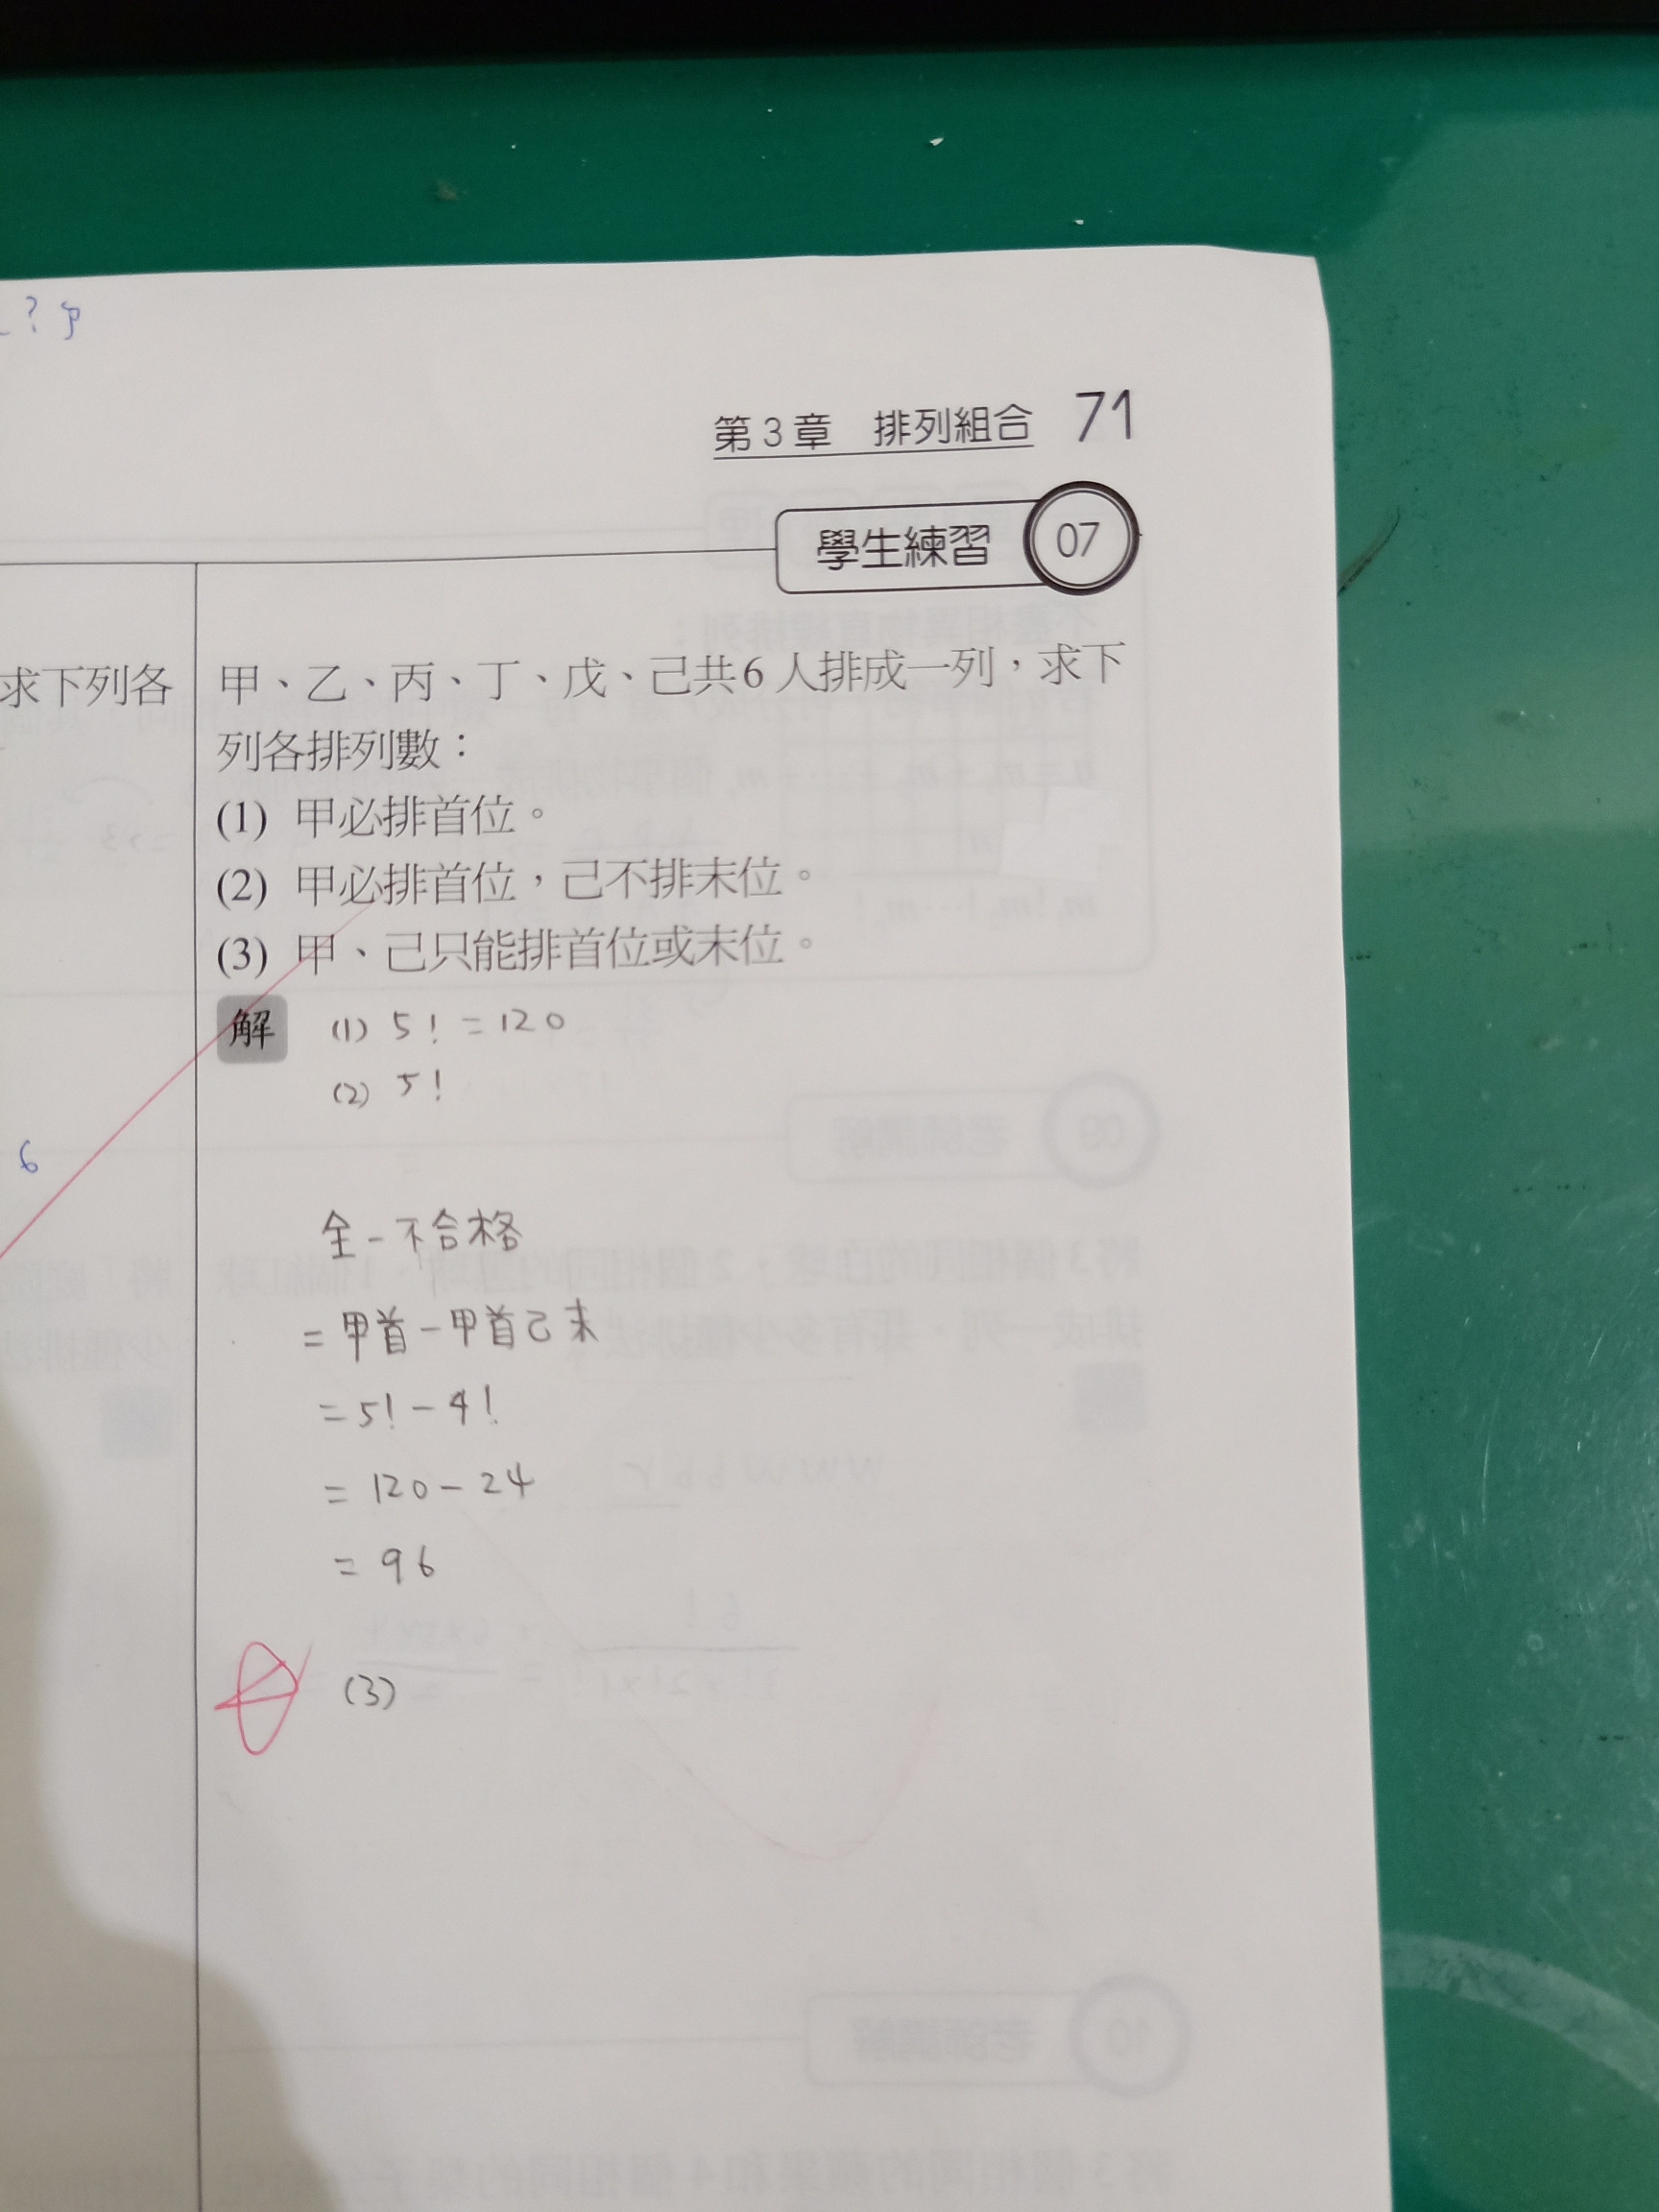 第3章 排列組合 71
學生練習 07
求下列各
甲、乙、丙、丁、戊、己共6人排成一列，求下
列各排列數：
(1) 甲必排首位。
(2) 甲必排首位，己不排末位。
(3) 甲、己只能排首位或末位。
解 (1) 5! = 120
(2) 5!
6
全-不合格
= 甲首-甲首己末
= 5! - 4!
= 120 - 24
= 96
(3)